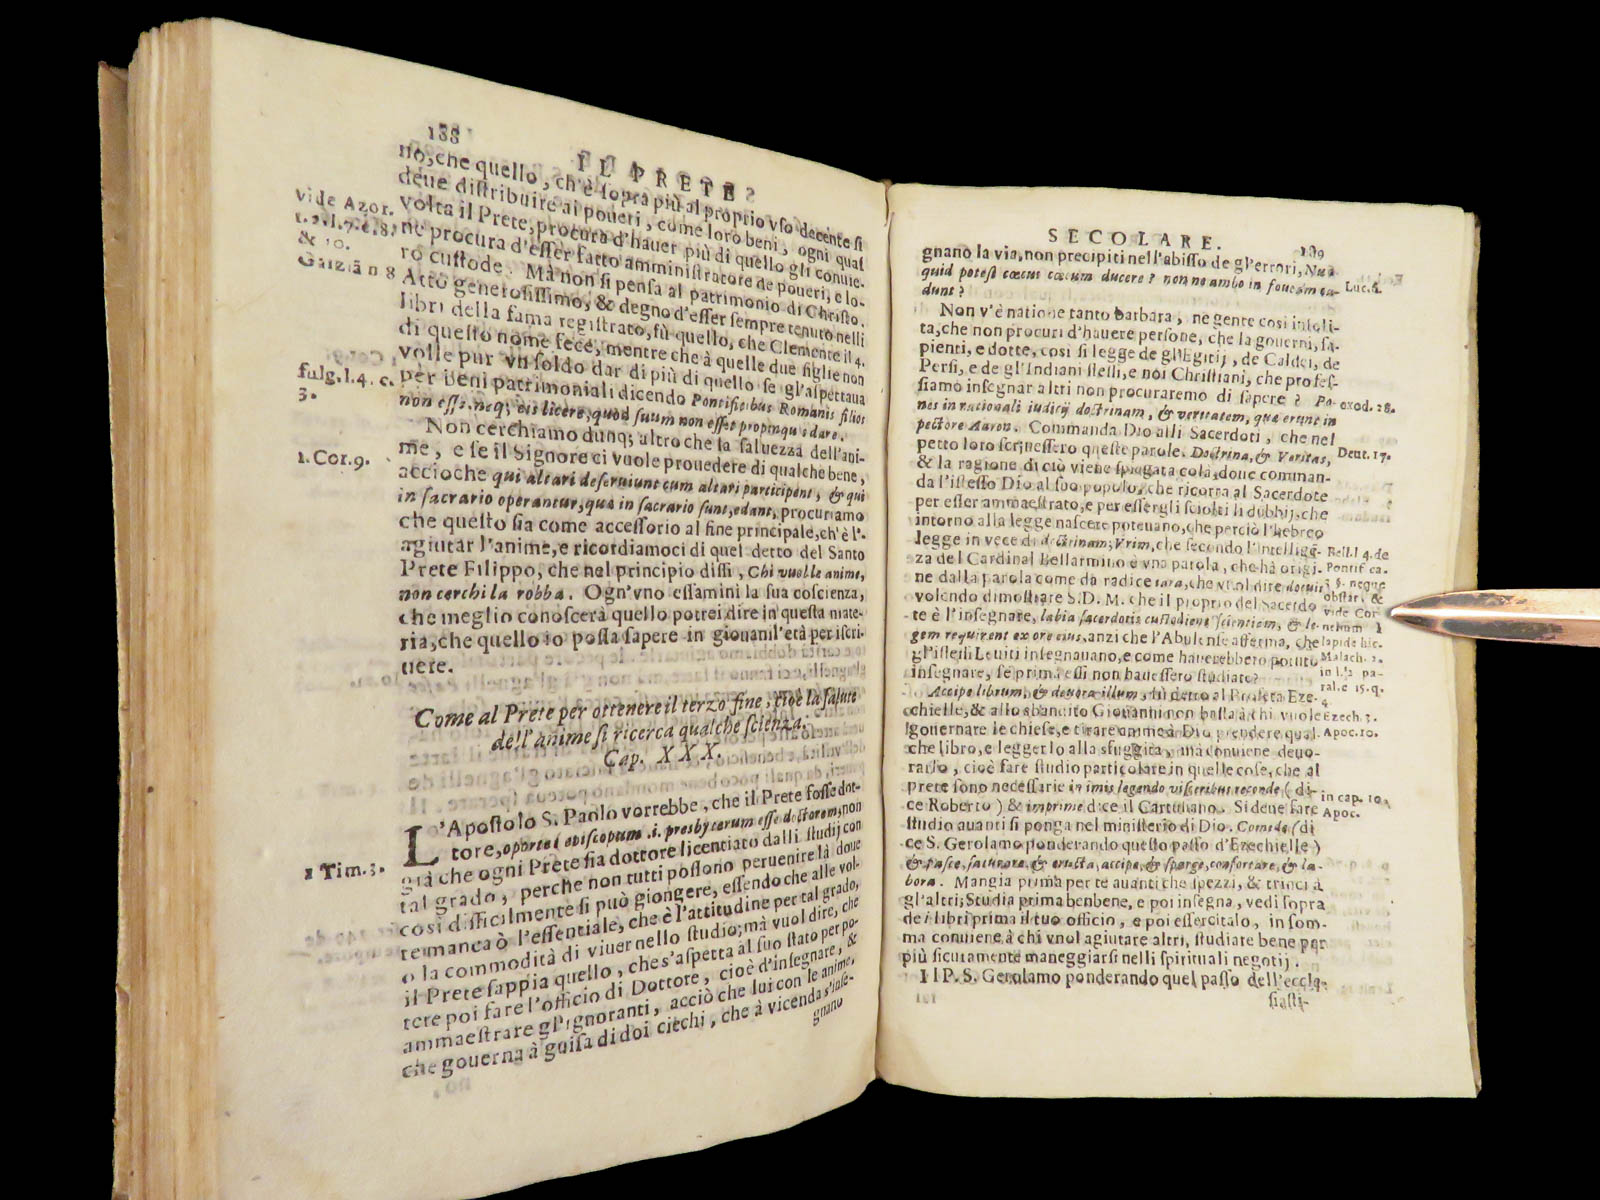 188
IL PRETE
no, che quello, ch'è sopra più al proprio vso decente si
deue distribuire ai poueri, come loro beni, ogni qual
volta il Prete, procura d'hauer più di quello gli conuie-
ne procura d'esser fatto amministratore de poueri, e lo-
ro custode. Mà non si pensa al patrimonio di Christo.
Atto generosissimo, & degno d'esser sempre tenuto nelli
libri della fama registrato, fù quello, che Clemente il 4.
di questo nome fece, mentre che à quelle due figlie non
volle pur vn soldo dar di più di quello se gl'aspettaua
per beni patrimoniali dicendo Pontificibus Romanis filios
non esse, neq; eis licere, quod suum non esset propinquis dare.
Non cerchiamo dunq; altro che la saluezza dell'ani-
me, e se il Signore ci vuole prouedere di qualche bene,
accioche qui altari deseruiunt cum altari participent, & qui
in sacrario operantur, quæ in sacrario sunt, edant, procuriamo
che questo sia come accessorio al fine principale, ch'è l'-
agiutar l'anime, e ricordiamoci di quel detto del Santo
Prete Filippo, che nel principio dissi, Chi vuol le anime,
non cerchi la robba. Ogn'vno essamini la sua coscienza,
che meglio conoscerà quello potrei dire in questa mate-
ria, che quello io possa sapere in giouanil'età per iscri-
uere.
vide Azor.
t. 2. l. 7. c. 8.
& 10.
Garziã n 8
fulg. l. 4. c.
3.
1. Cor. 9.
Come al Prete per ottenere il terzo fine, cioè la salute
dell'anime si ricerca qualche scienza.
Cap. XXX.
L'Apostolo S. Paolo vorrebbe, che il Prete fosse dot-
tore, oportet episcopum .i. presbyterum esse doctorem, non
già che ogni Prete sia dottore licentiato dalli studij con
tal grado, perche non tutti possono peruenire là doue
così difficilmente si può giongere, essendo che alle vol-
te manca ò l'essentiale, che è l'attitudine per tal grado,
o la commodità di viuer nello studio; mà vuol dire, che
il Prete sappia quello, che s'aspetta al suo stato per po-
tere poi fare l'officio di Dottore, cioè d'insegnare, &
ammaestrare gl'ignoranti, acciò che lui con le anime,
che gouerna à guisa di doi ciechi, che à vicenda s'inse-
gnano
1 Tim. 3.
SECOLARE.
189
gnano la via, non precipiti nell'abisso de gl'errori, Nun
quid potest cœcus cœcum ducere? non ne ambo in foueam ca-
dunt?
Non v'è natione tanto barbara, ne gente così insoli-
ta, che non procuri d'hauere persone, che la gouerni, sa-
pienti, e dotte, così si legge de gl'Egitij, de Caldei, de
Persi, e de gl'Indiani stessi, e noi Christiani, che profes-
siamo insegnar altri non procuraremo di sapere? Po-
nes in rationali iudicij doctrinam, & veritatem, quæ erunt in
pectore Aaron. Commanda Dio alli Sacerdoti, che nel
petto loro scriuessero queste parole. Doctrina, & Veritas,
& la ragione di ciò viene spiegata colà, doue comman-
da l'istesso Dio al suo popolo, che ricorra al Sacerdote
per esser ammaestrato, e per essergli sciolti li dubbij, che
intorno alla legge nascere poteuano, che perciò l'hebreo
legge in vece di doctrinam; Vrim, che secondo l'Intelligē-
za del Cardinal Bellarmino è vna parola, che hà origi-
ne dalla parola come da radice iara, che vuol dire docuit
volendo dimostrare S. D. M. che il proprio del Sacerdo
te è l'insegnare, labia sacerdotis custodient scientiam, & le-
gem requirent ex ore eius, anzi che l'Abulense afferma, che
gl'istessi Leuiti insegnauano, e come hauerebbero potuto
insegnare, se prima essi non hauessero studiato?
Accipe librum, & deuora illum, fù detto al Profeta Eze-
chielle, & allo sbandito Giouanni non basta à chi vuole
gouernare le chiese, e tirare anime à Dio prendere qual
che libro, e leggerlo alla sfuggita, mà conuiene deuo-
rarlo, cioè fare studio particolare in quelle cose, che al
prete sono necessarie in imis legendo visceribus reconde (di-
ce Roberto) & imprime dice il Cartusiano. Si deue fare
studio auanti si ponga nel ministerio di Dio. Comede (di
ce S. Gerolamo ponderando questo passo d'Ezechielle)
& pasce, saturare, & eructa, accipe, & sparge, confortare, & la-
bora. Mangia prima per te auanti che spezzi, & trinci à
gl'altri; Studia prima benbene, e poi insegna, vedi sopra
de i libri prima il tuo officio, e poi essercitalo, in som-
ma conuiene à chi vuol agiutare altri, studiare bene per
più sicuramente maneggiarsi nelli spirituali negotij.
Il P. S. Gerolamo ponderando quel passo dell'eccle-
siasti-
Luc. 6.
exod. 28.
Deut. 17.
Bell. l 4. de
Pontif ca.
3 §. neque
obstat. &
vide Cor
nelium
lapide hic.
Malach. 2.
in l. 2 pa-
ral. c 15. q.
4.
Ezech. 3.
Apoc. 10.
in cap. 10.
Apoc.